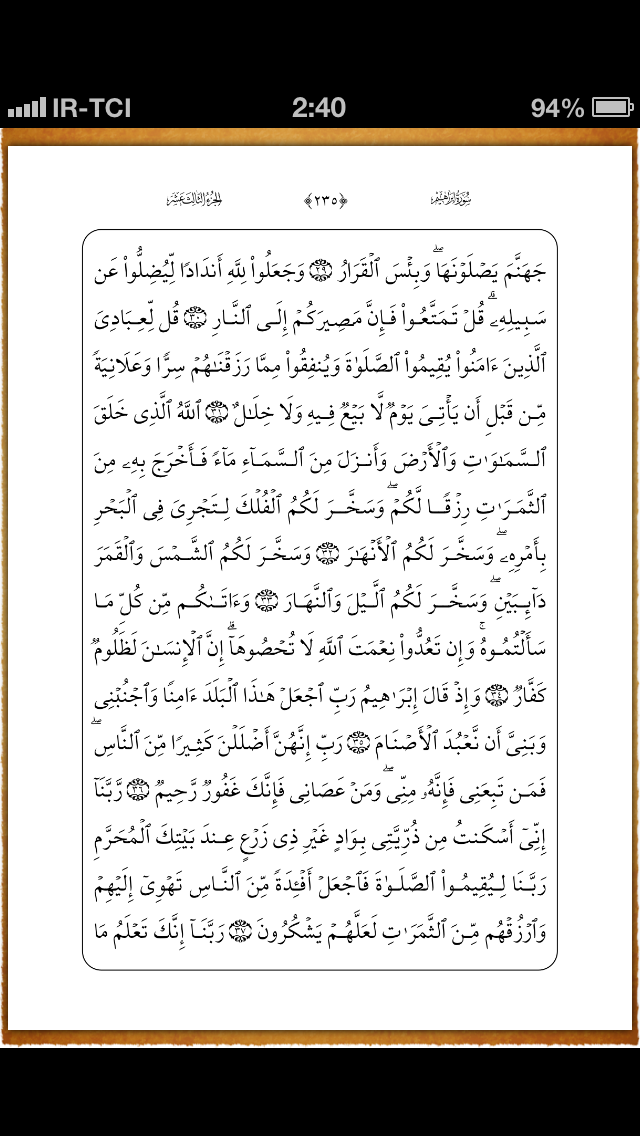 IR-TCI 2:40 94%
سُورَةُ إِبْرَاهِيمَ ﴿٢٣٥﴾ الجُزْءُ الثَّالِثَ عَشَرَ
جَهَنَّمَ يَصْلَوْنَهَا ۖ وَبِئْسَ ٱلْقَرَارُ ٢٩ وَجَعَلُوا۟ لِلَّهِ أَندَادًا لِّيُضِلُّوا۟ عَن
سَبِيلِهِۦ ۗ قُلْ تَمَتَّعُوا۟ فَإِنَّ مَصِيرَكُمْ إِلَى ٱلنَّارِ ٣٠ قُل لِّعِبَادِىَ
ٱلَّذِينَ ءَامَنُوا۟ يُقِيمُوا۟ ٱلصَّلَوٰةَ وَيُنفِقُوا۟ مِمَّا رَزَقْنَـٰهُمْ سِرًّا وَعَلَانِيَةً
مِّن قَبْلِ أَن يَأْتِىَ يَوْمٌ لَّا بَيْعٌ فِيهِ وَلَا خِلَـٰلٌ ٣١ ٱللَّهُ ٱلَّذِى خَلَقَ
ٱلسَّمَـٰوَٰتِ وَٱلْأَرْضَ وَأَنزَلَ مِنَ ٱلسَّمَآءِ مَآءً فَأَخْرَجَ بِهِۦ مِنَ
ٱلثَّمَرَٰتِ رِزْقًا لَّكُمْ ۖ وَسَخَّرَ لَكُمُ ٱلْفُلْكَ لِتَجْرِىَ فِى ٱلْبَحْرِ
بِأَمْرِهِۦ ۖ وَسَخَّرَ لَكُمُ ٱلْأَنْهَـٰرَ ٣٢ وَسَخَّرَ لَكُمُ ٱلشَّمْسَ وَٱلْقَمَرَ
دَآئِبَيْنِ ۖ وَسَخَّرَ لَكُمُ ٱلَّيْلَ وَٱلنَّهَارَ ٣٣ وَءَاتَىٰكُم مِّن كُلِّ مَا
سَأَلْتُمُوهُ ۚ وَإِن تَعُدُّوا۟ نِعْمَتَ ٱللَّهِ لَا تُحْصُوهَآ ۗ إِنَّ ٱلْإِنسَـٰنَ لَظَلُومٌ
كَفَّارٌ ٣٤ وَإِذْ قَالَ إِبْرَٰهِيمُ رَبِّ ٱجْعَلْ هَـٰذَا ٱلْبَلَدَ ءَامِنًا وَٱجْنُبْنِى
وَبَنِىَّ أَن نَّعْبُدَ ٱلْأَصْنَامَ ٣٥ رَبِّ إِنَّهُنَّ أَضْلَلْنَ كَثِيرًا مِّنَ ٱلنَّاسِ ۖ
فَمَن تَبِعَنِى فَإِنَّهُۥ مِنِّى ۖ وَمَنْ عَصَانِى فَإِنَّكَ غَفُورٌ رَّحِيمٌ ٣٦ رَّبَّنَآ
إِنِّىٓ أَسْكَنتُ مِن ذُرِّيَّتِى بِوَادٍ غَيْرِ ذِى زَرْعٍ عِندَ بَيْتِكَ ٱلْمُحَرَّمِ
رَبَّنَا لِيُقِيمُوا۟ ٱلصَّلَوٰةَ فَٱجْعَلْ أَفْـِٔدَةً مِّنَ ٱلنَّاسِ تَهْوِىٓ إِلَيْهِمْ
وَٱرْزُقْهُم مِّنَ ٱلثَّمَرَٰتِ لَعَلَّهُمْ يَشْكُرُونَ ٣٧ رَبَّنَآ إِنَّكَ تَعْلَمُ مَا